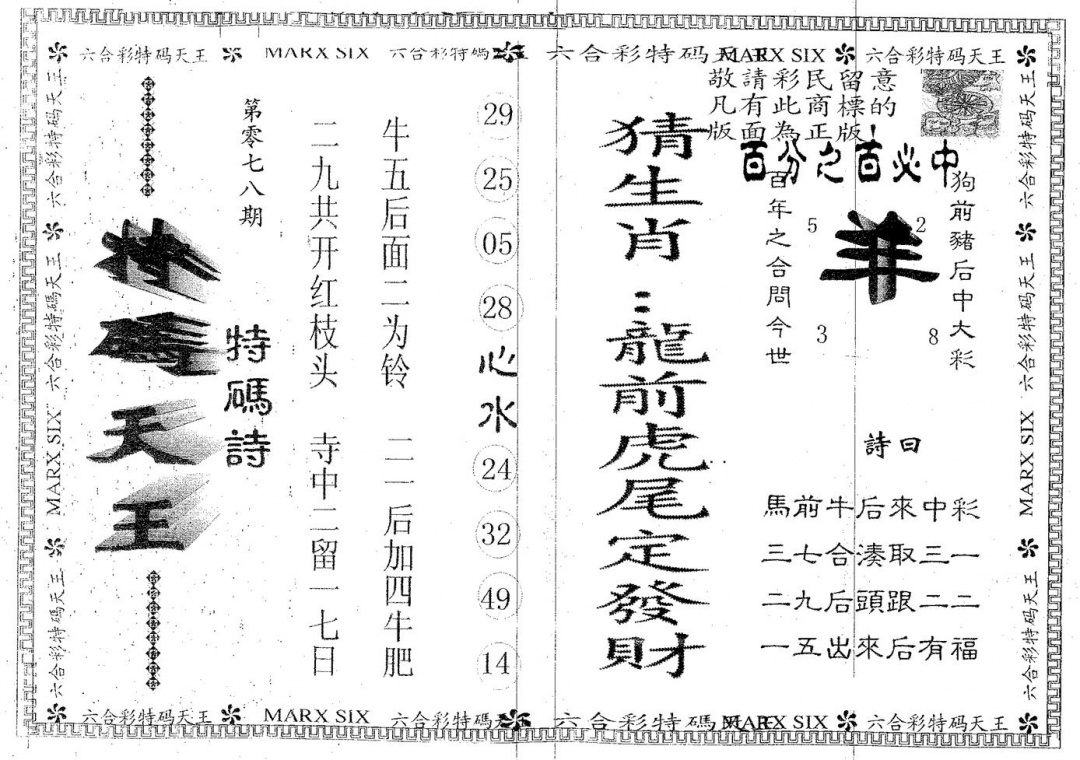 六合彩特码天王 MARX SIX 六合彩特碼 六合彩特码天王 MARX SIX 六合彩特码天王
敬請彩民留意
凡有此商標的
版面為正版!
百分之百必中
狗前豬后中大彩
羊
5 2
3 8
百年之合問今世
詩曰
馬前牛后來中彩
三七合湊取三一
二九后頭跟二二
一五出來后有福
猜生肖:龍前虎尾定發財
29
25
05
28
心水
24
32
49
14
牛五后面二为铃 二一后加四牛肥
二九共开红枝头 寺中二留一七日
第零七八期
特碼詩
特碼天王
六合彩特码天王 六合彩特码天王 MARX SIX 六合彩特码天王
六合彩特码天王 六合彩特码天王 MARX SIX 六合彩特码天王
六合彩特码天王 MARX SIX 六合彩特碼天王 六合彩特碼 MARX SIX 六合彩特码天王